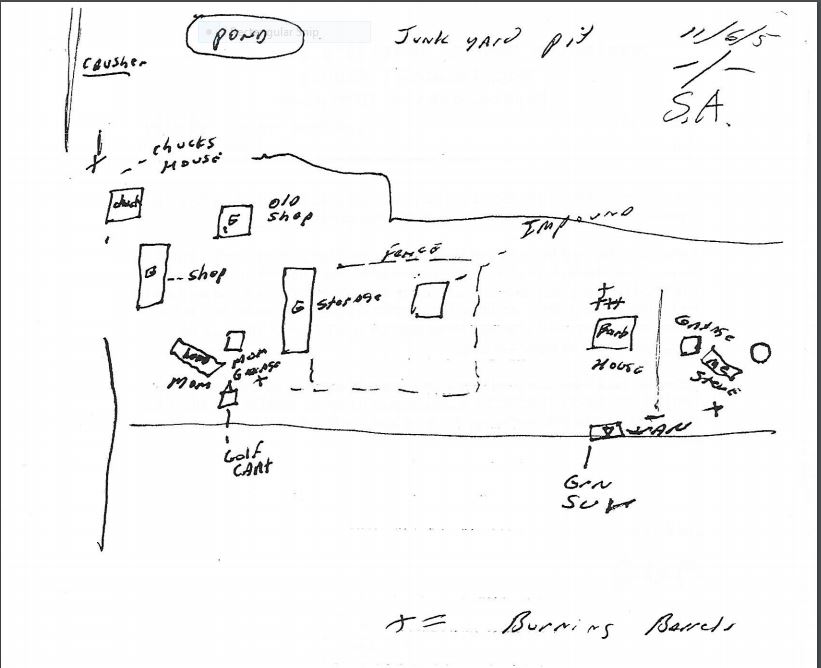 POND
Junk yard pit
11/6/5
S.A.
Crusher
chucks
House
chuck
old
shop
Shop
Fence
Impound
Storage
Mom
Mom
Garage
Barb
House
Garage
ME
Steve
VAN
Golf
CART
Grn
SUV
x = Burning Barrels